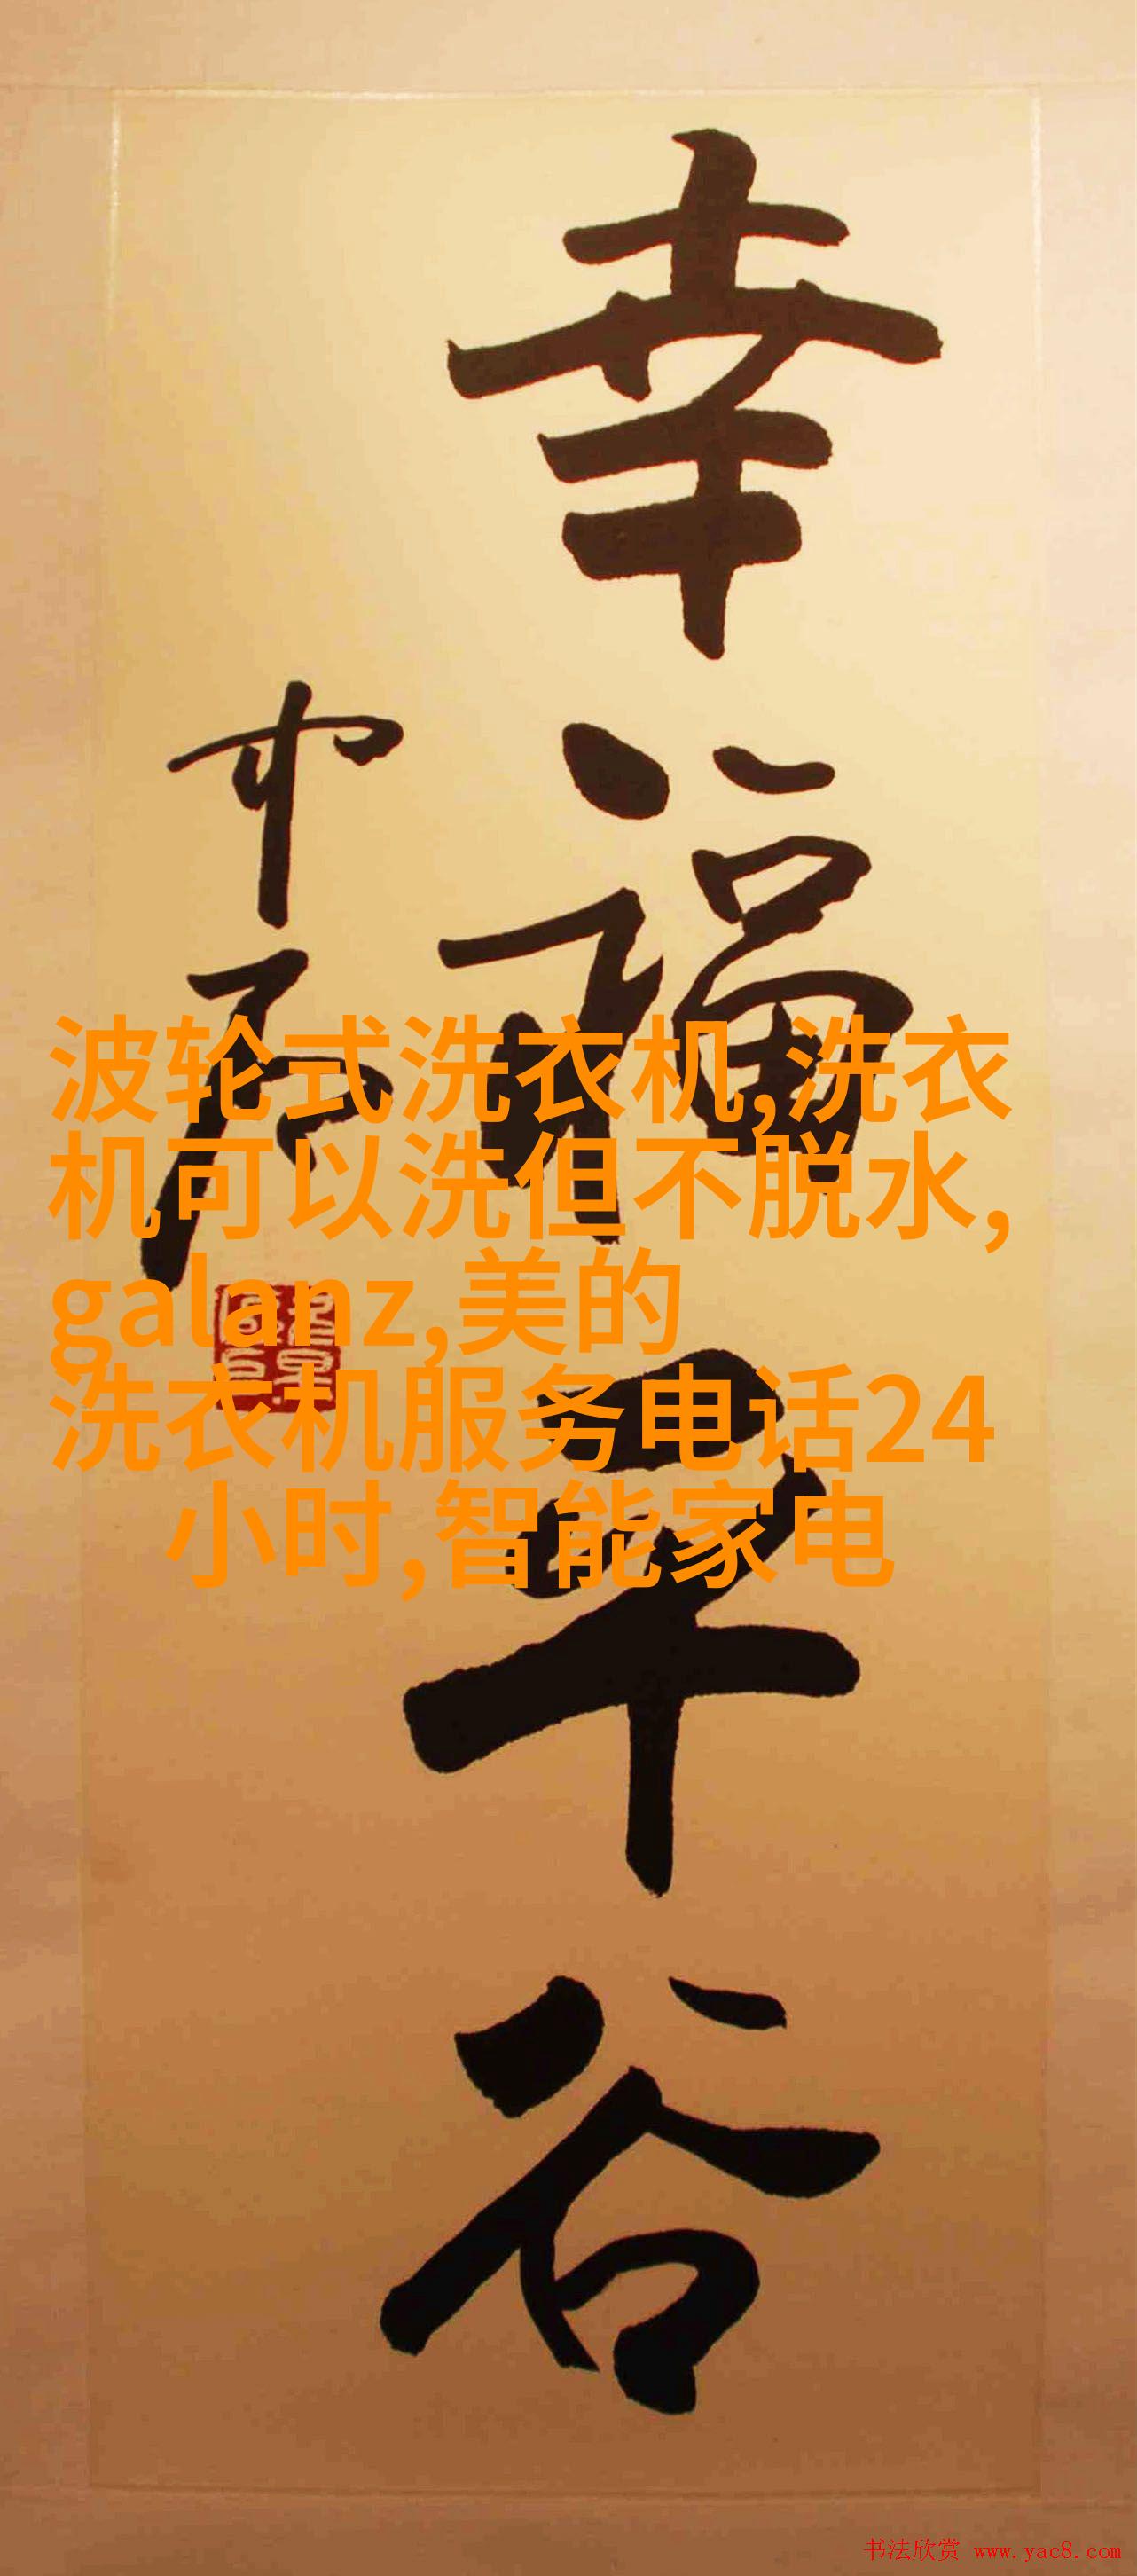 幸福平谷
波轮式洗衣机,洗衣
机可以洗但不脱水,
galanz,美的
洗衣机服务电话24
小时,智能家电
书法欣赏 www.yac8.com